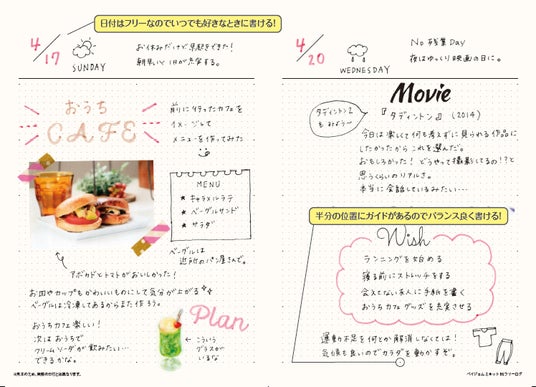 日付はフリーなのでいつでも好きなときに書ける!
4/17
SUNDAY
お休みだけど早起きできた!
朝早いと1日が充実する。
おうち
CAFE
前に行ったカフェを
イメージして
メニューを作ってみた
MENU
★ キャラメルラテ
★ ベーグルサンド
★ サラダ
ベーグルは
近所のパン屋さんで。
アボカドとトマトがおいしかった!
お皿やカップもかわいいものにして気分が上がる
ベーグルは冷凍してあるからまた作ろう。
おうちカフェ楽しい!
次はおうちで
クリームソーダが飲みたい…
できるかな。
Plan
こういう
グラスが
いるな
4/20
WEDNESDAY
No 残業 Day
夜はゆっくり映画の日に。
Movie
タディントン2
もみよう
『タディントン』 (2014)
今日は楽しくて何も考えずに見られる作品に
したかったからこれを選んだ。
おもしろかった! どうやって撮影してるの!?と
思うくらいのリアルさ。
本当に会話しているみたい…
半分の位置にガイドがあるのでバランス良く書ける!
Wish
ランニングを始める
寝る前にストレッチをする
会えてない友人に手紙を書く
おうちカフェグッズを充実させる
運動不足を何とか解消しなくては!
気候も良いのでカラダを動かすぞ。
※見本のため、実際の日付とは異なります。
ペイジェムミネット B6 フリーログ